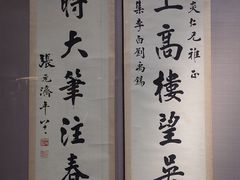 仁兄雅正
集李白劉禹錫
上高樓望吳
時大筆注春
張元濟年